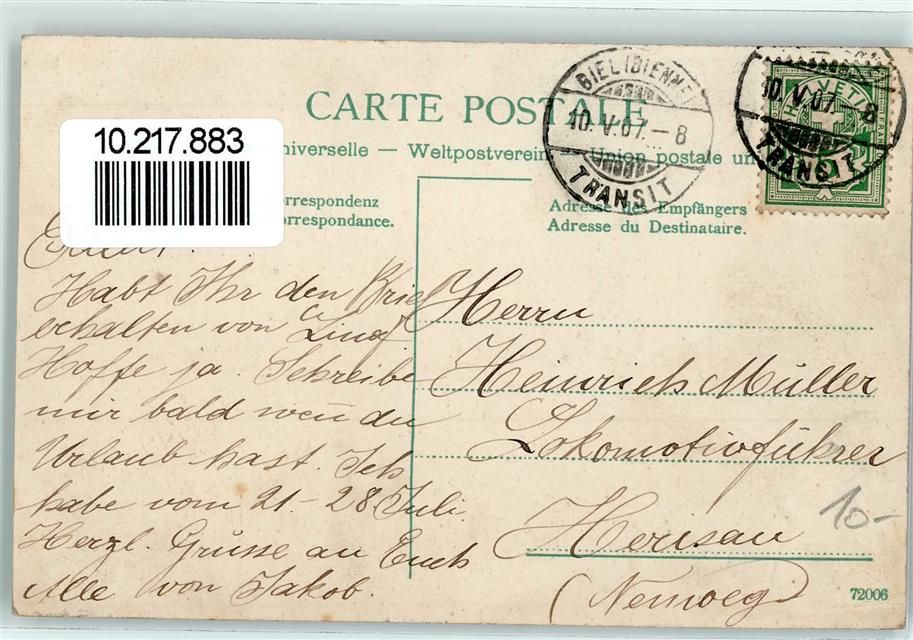 CARTE POSTALE
10.217.883
niverselle — Weltpostverein — Union postale un
BIEL (BIENNE)
10. V. 07. – 8
TRANSIT
HELVETIA
10. V. 07. – 8
TRANSIT
orrespondenz
orrespondance.
Adresse des Empfängers
Adresse du Destinataire.
Habt Ihr den Brief
erhalten von
Hoffe ja. Schreibe
mir bald wen̄ du
Urlaub hast. Ich
habe vom 21 – 28 Juli
Herzl. Grüsse an Euch
Alle von Jakob.
Herrn
Heinrich Müller
Lokomotivführer
Herisau
10-
72006